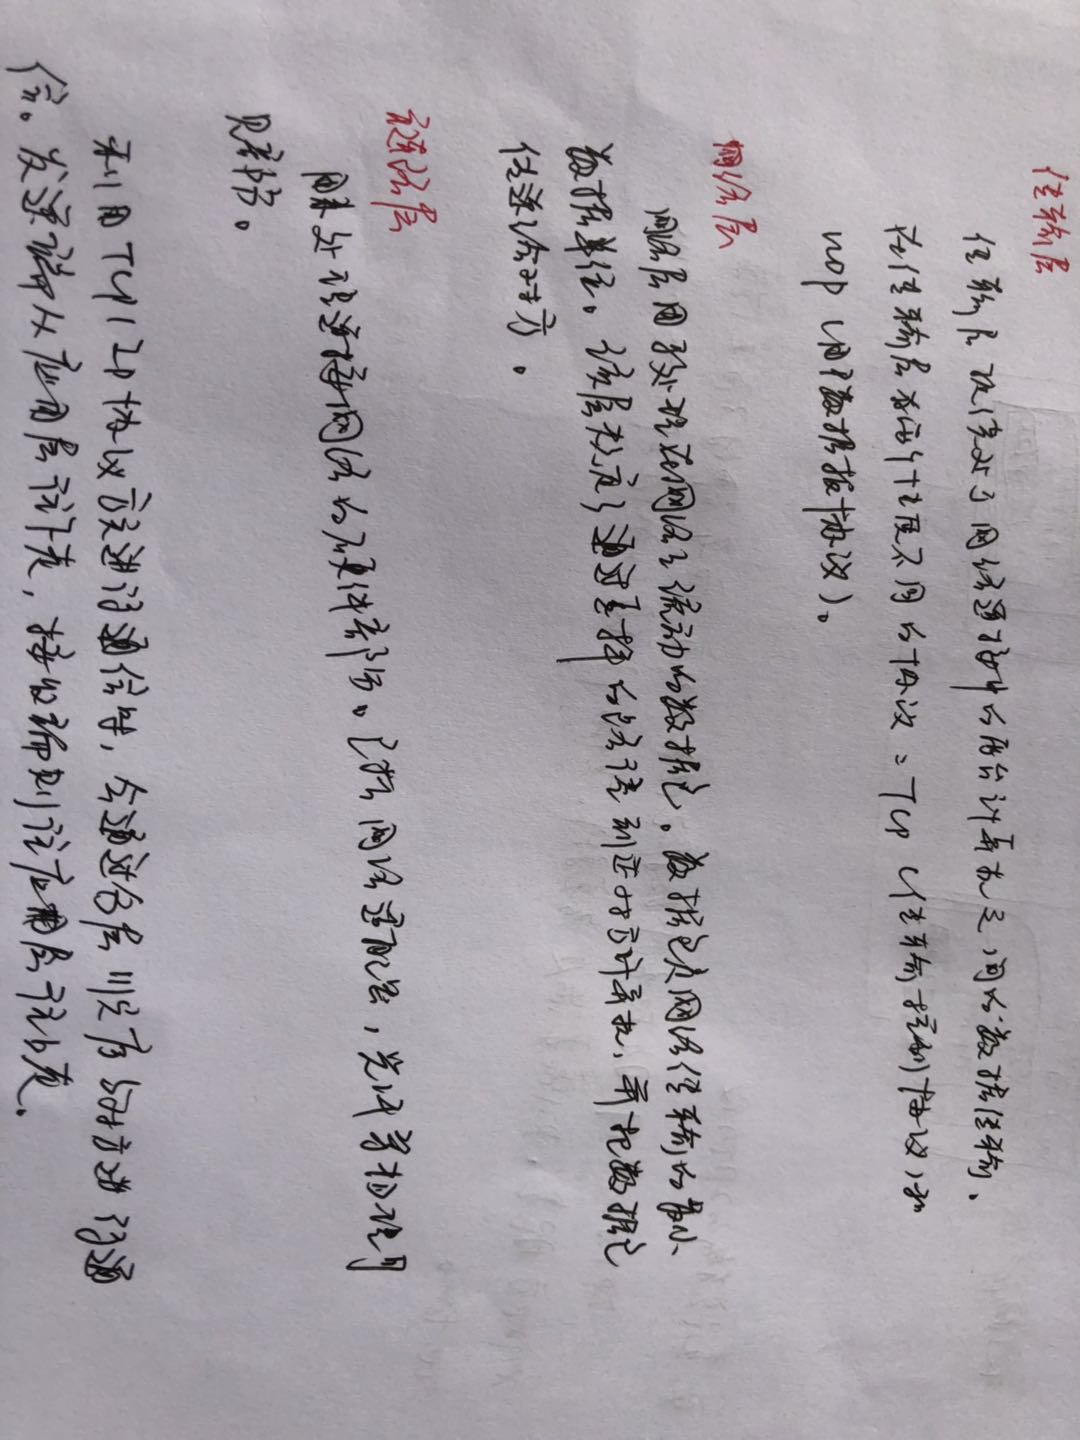 传输层
传输层提供处于网络连接中的两台计算机之间的数据传输.
在传输层有两个性质不同的协议：TCP（传输控制协议）和
UDP（用户数据报协议）。
网络层
网络层用来处理在网络上流动的数据包。数据包是网络传输的最小
数据单位。该层规定了通过怎样的路径到达对方计算机，并把数据包
传送给对方。
链路层
用来处理连接网络的硬件部分。包括网络适配器，光纤等物理可
见部分。
利用TCP/IP协议族进行通信时，会通过分层顺序与对方进行通
信。发送端从应用层往下走，接收端则往应用层往上走.